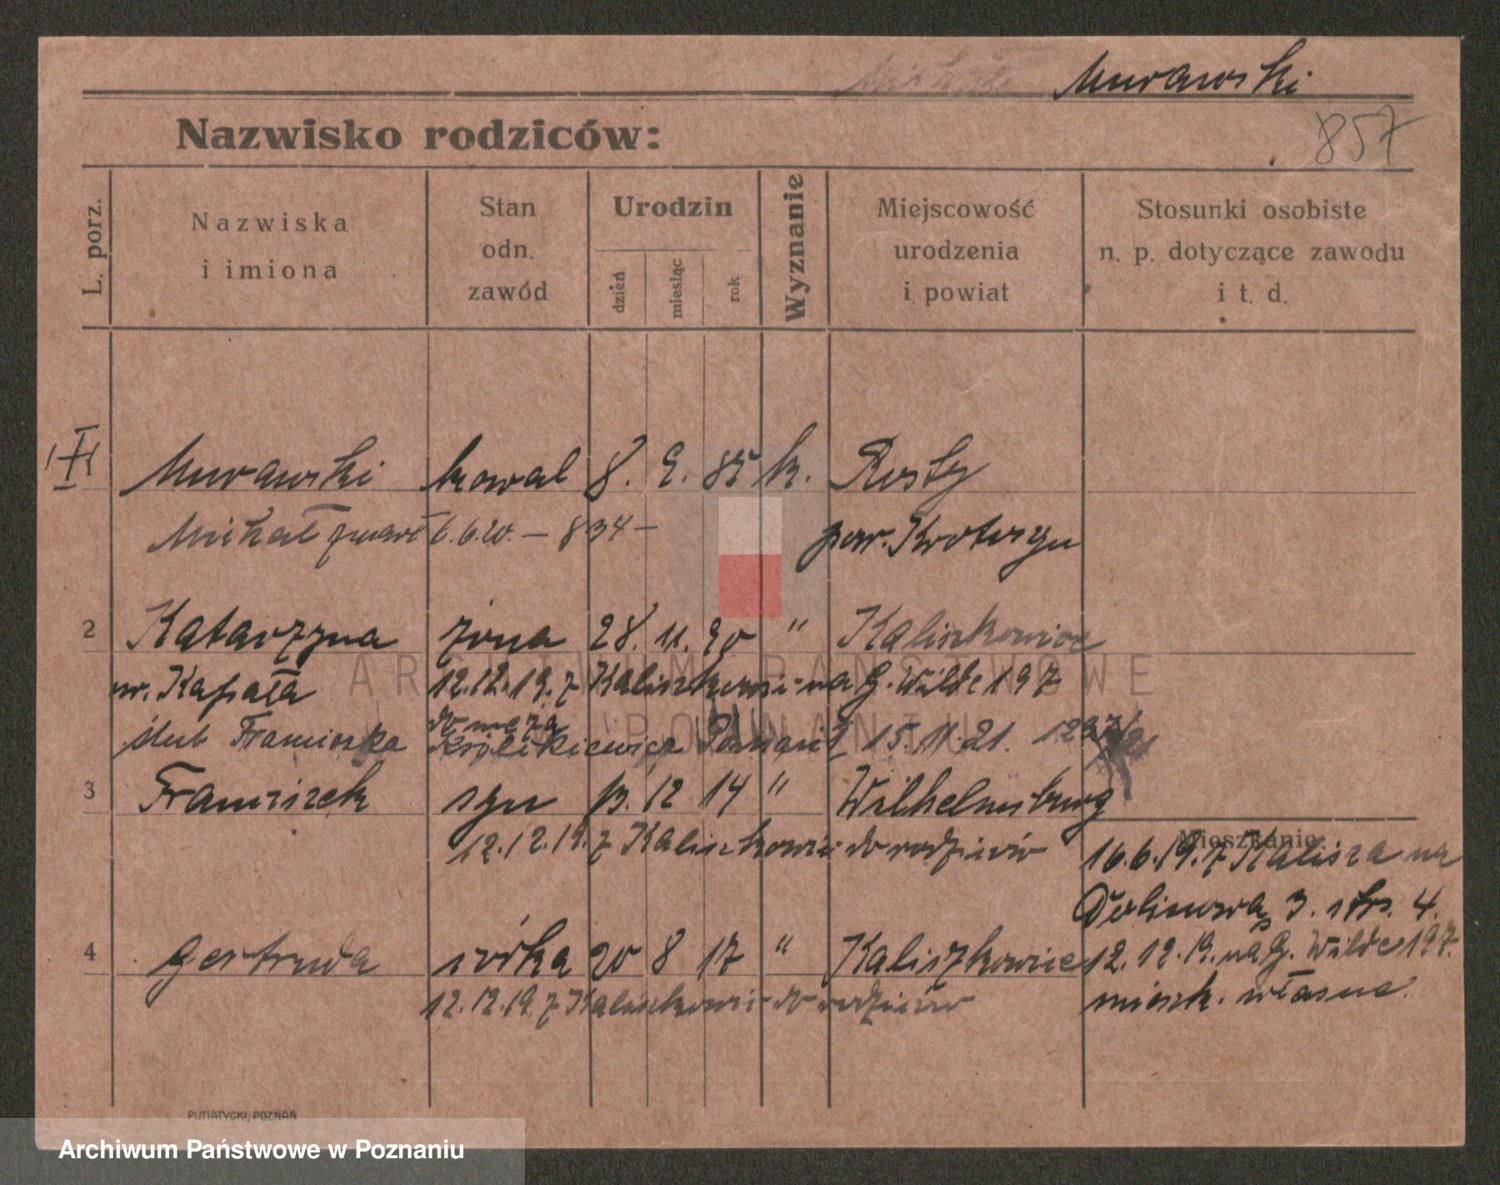 Murawski
857
Nazwisko rodziców:
L. porz.
Nazwiska
i imiona
Stan
odn.
zawód
Urodzin
dzień
miesiąc
rok
Wyznanie
Miejscowość
urodzenia
i powiat
Stosunki osobiste
n. p. dotyczące zawodu
i t. d.
Murawski kowal 8. 9. 85 k.
Michał zmarł 6.6.20. — 834 — pow. Krotoszyn
2 Katarzyna żona 28. 11. 90 " Kaliszkowice
ur. Kapała 12.12.19. z Kaliszkowic na G. Wilde 197
ślub Franciszka do męża
Królikiewicz Poznań 15.11.21.
3 Franciszek syn 12 14 " Wilhelmsburg
12.12.19. z Kaliszkowic do rodziców
Mieszkanie:
16.6.19. z Kalisza na
Dolinowa 3. 4.
4 Gertruda córka 20 8 17 " Kaliszkowice
12.12.19. na G. Wilde 197.
12.12.19. z Kaliszkowic do rodziców
mieszk. własne.
PUTIATYCKI, POZNAŃ
ARCHIWUM PAŃSTWOWE
W POZNANIU
Archiwum Państwowe w Poznaniu